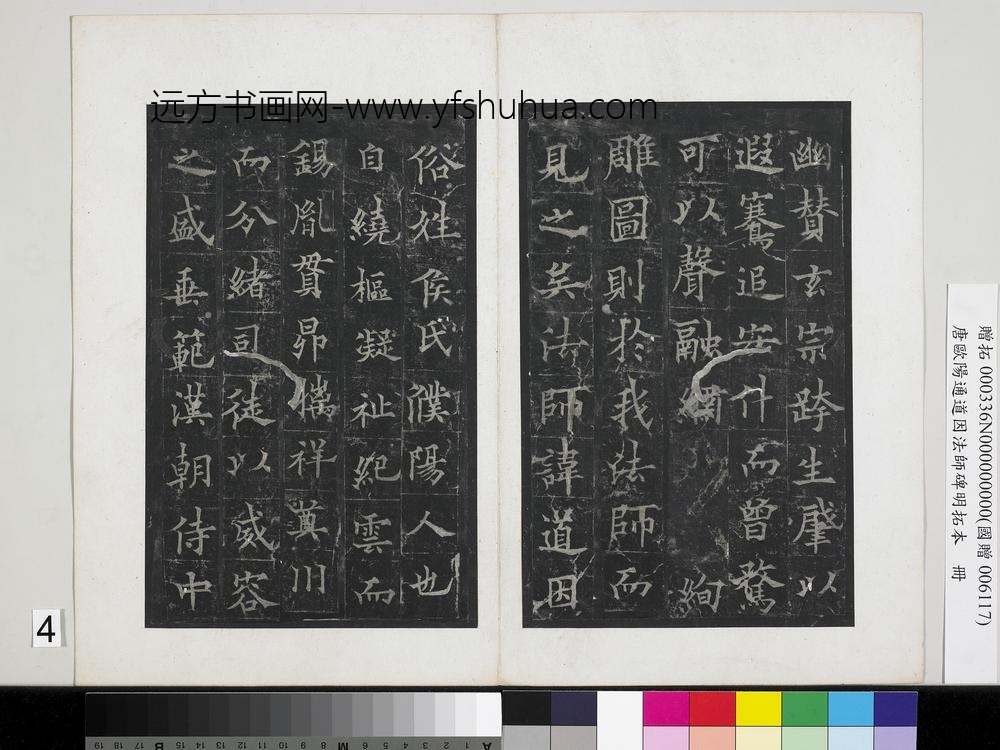 远方书画网-www.yfshuhua.com
幽賛玄宗跨生肇以
遐騫追安什而曾騖
可以聲融絢
雕圖則於我法師而
見之矣法師諱道因
俗姓侯氏濮陽人也
自繞樞凝祉紀雲而
錫胤貫昴祥奠川
而分緒司徒以威容
之盛垂範漢朝侍中
贈拓 000336N000000000(國贈 006117)
唐歐陽通道因法師碑明拓本 冊
4
19 18 17 16 15 B 12 11 10 9 8 M 6 5 4 3 2 1 A